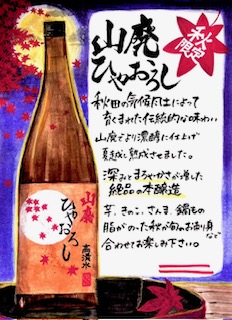 秋限定
山廃
ひやおろし
秋田の気候風土によって
育くまれた伝統的な味わい
山廃でより濃醇に仕上げ
夏越し熟成させました。
深みとまろやかさが増した
絶品の本醸造
芋、きのこ、さんま、鍋もの
脂がのった秋が旬のお造り
など
合わせてお楽しみ下さい。
山廃
ひやおろし
高清水